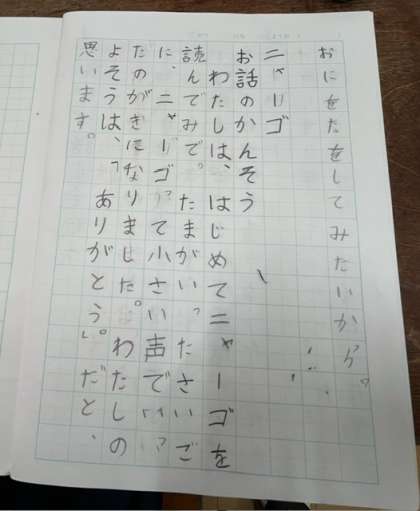 おにをたをしてみたいから。
ニャーゴ
お話のかんそう
わたしは、はじめてニャーゴを
読んでみで。たまがいったさいご
に、ニャーゴ」って小さい声でいっ
たのがぎになりました。わたしの
よそうは、「ありがとう」。だと、
思います。